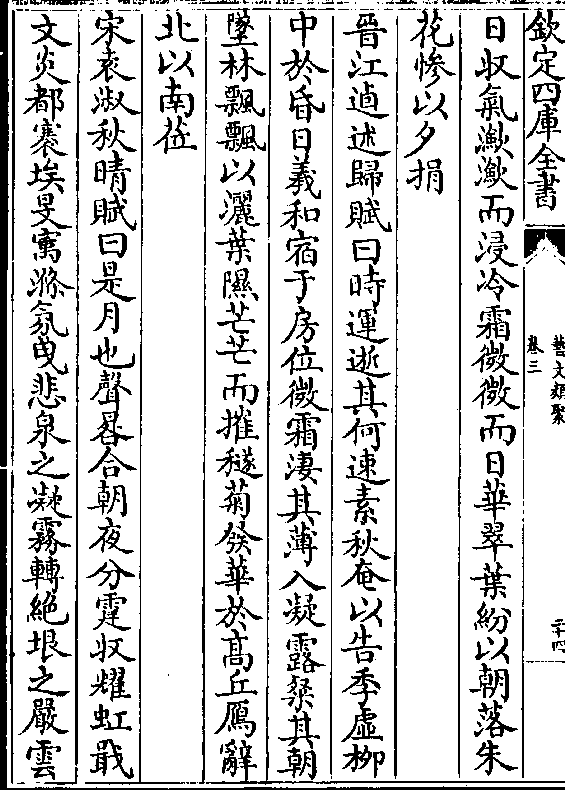 欽定四庫全書
藝文類聚
卷三
二十四
日收氣潎潎而浸冷霜微微而日華翠葉紛以朝落朱
花慘以夕捐
晉江逌述歸賦曰時運逝其何速素秋奄以告季虛柳
中於昏日羲和宿于房位微霜淒其薄入凝露粲其朝
墜林飄飄以灑葉隰芒芒而摧穟菊發華於高丘鴈辭
北以南徙
宋袁淑秋晴賦曰是月也聲晷合朝夜分霆収耀虹戢
文炎都褰埃旻寓滌氛曳悲泉之凝霧轉絕垠之嚴雲